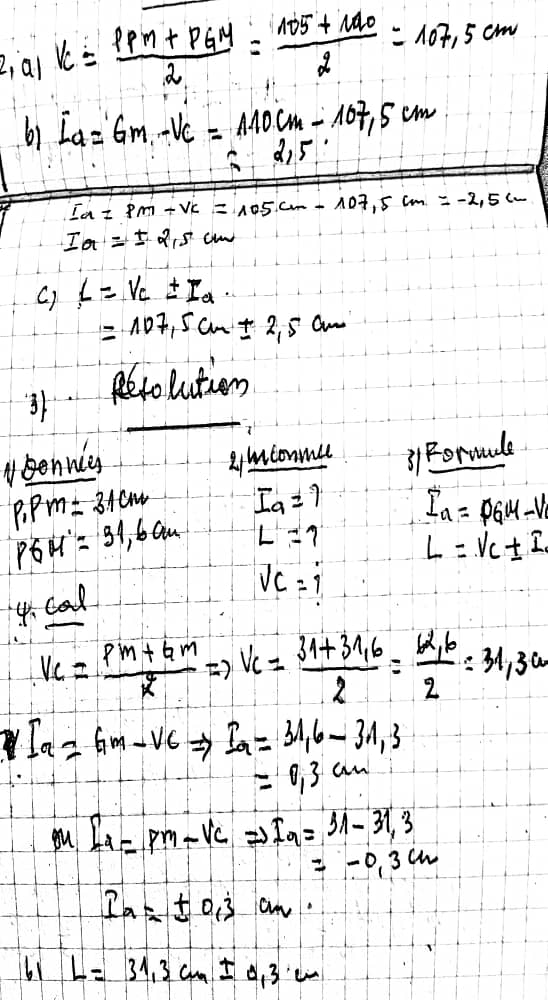 2, a) Vc = (PPm + PGM)/2 = (105 + 110)/2 = 107,5 cm
b) Ia = Gm - Vc = 110 cm - 107,5 cm
= 2,5
Ia = Pm - Vc = 105 cm - 107,5 cm = -2,5 c
Ia = ± 2,5 cm
c) L = Vc ± Ia.
= 107,5 cm ± 2,5 cm
3) Résolution
1) Données 2) Inconnue 3) Formule
P.Pm = 31 cm Ia = ? Ia = PGM - Vc
PGM = 31,6 cm L = ? L = Vc ± I
VC = ?
4. Cal
Vc = (Pm + Gm)/2 => Vc = (31 + 31,6)/2 = 62,6/2 = 31,3 c
Ia = Gm - Vc => Ia = 31,6 - 31,3
= 0,3 cm
ou Ia = Pm - Vc => Ia = 31 - 31,3
= -0,3 cm
Ia = ± 0,3 cm.
b) L = 31,3 cm ± 0,3 cm